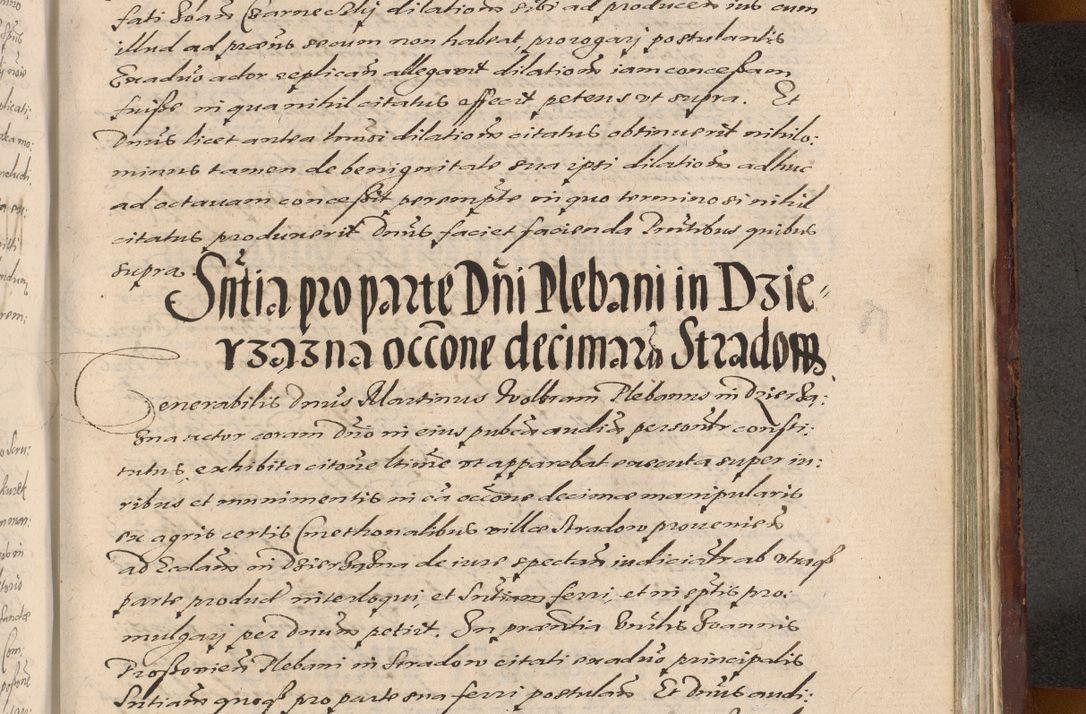 fati Joan Czarneczkij dilationem sibi ad producen ius cum
illud ad præns secum non habeat, prorogarj postulantis
Ex aduo actor replican allegavit dilationem iam conceßam
fuiße in qua nihil citatus effecit petens vt supra. Et
Dnus licet antea hmoi dilationem citatus obtinuerit nihilo:
minus tamen de benignitate sua ipsi dilationem adhuc
ad octauam conceßit peremptæ in quo termino si nihil
citatus produxerit Dnus faciet facienda Pntibus quibus
supra.
Sntia pro parte Dni Plebani in Dzie-
rzazna occone decimarum Stradow
Venerabilis Dnus Martinus Wolbram Plebanus in Dzierza:
zna actor coram Dno in eius pubca audia personlr consti:
tutus, exhibita citone ltime vt apparebat executa super iu:
ribus et munimentis in ca occone decimæ manipularis
ex agris certis Cmethonalibus villæ Stradow prouenien
ad Ecclam in Dzierzazna de iure spectan iudicialr ab vtraq
parte product interloqui, et Sntiam ferri, et in sptis pro:
mulgarj per Dnum petiit. In præntia Vnlis Joannis
Proßouien Plebani in Stradow citati ex aduo principalis
Sntiam quoq pro parte sua ferri postulan Et Dnus audi: